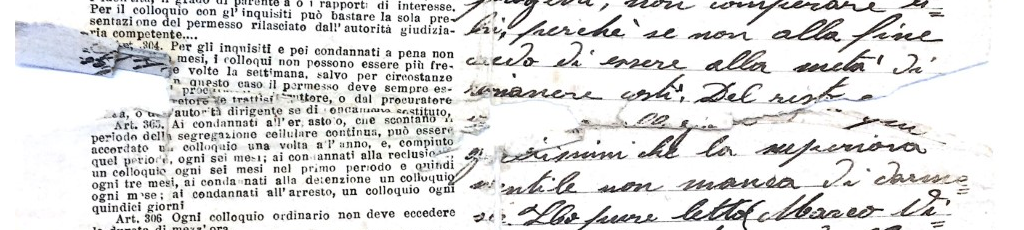 il grado di parente a o i rapporti di interesse.
Per il colloquio con gl'inquisiti può bastare la sola pre-
sentazione del permesso rilasciato dall'autorità giudizia-
ria competente....
Art. 304. Per gli inquisiti e pei condannati a pena non
mesi, i colloqui non possono essere più fre-
e volte la settimana, salvo per circostanze
n questo caso il permesso deve sempre es-
ttore, o dal procuratore
autorità dirigente se di
Art. 305. Ai condannati all'er astolo, che scontano il
periodo della segregazione cellulare continua, può essere
accordato un colloquio una volta a l'anno, e, compiuto
quel periodo, ogni sei mesi; ai condannati alla reclusio
un colloquio ogni sei mesi nel primo periodo e quindi
ogni tre mesi, ai condannati alla detenzione un colloquio
ogni mese; ai condannati all'arresto, un colloquio ogni
quindici giorni
Art. 306 Ogni colloquio ordinario non deve eccedere
la durata di mezz'ora
non comperare es=
perchè se non alla fine
credo di essere alla metà di
rimanere costì. Del resto
che la superiora
gentile non manca di darme=
Ho pure letto Marco Vi-